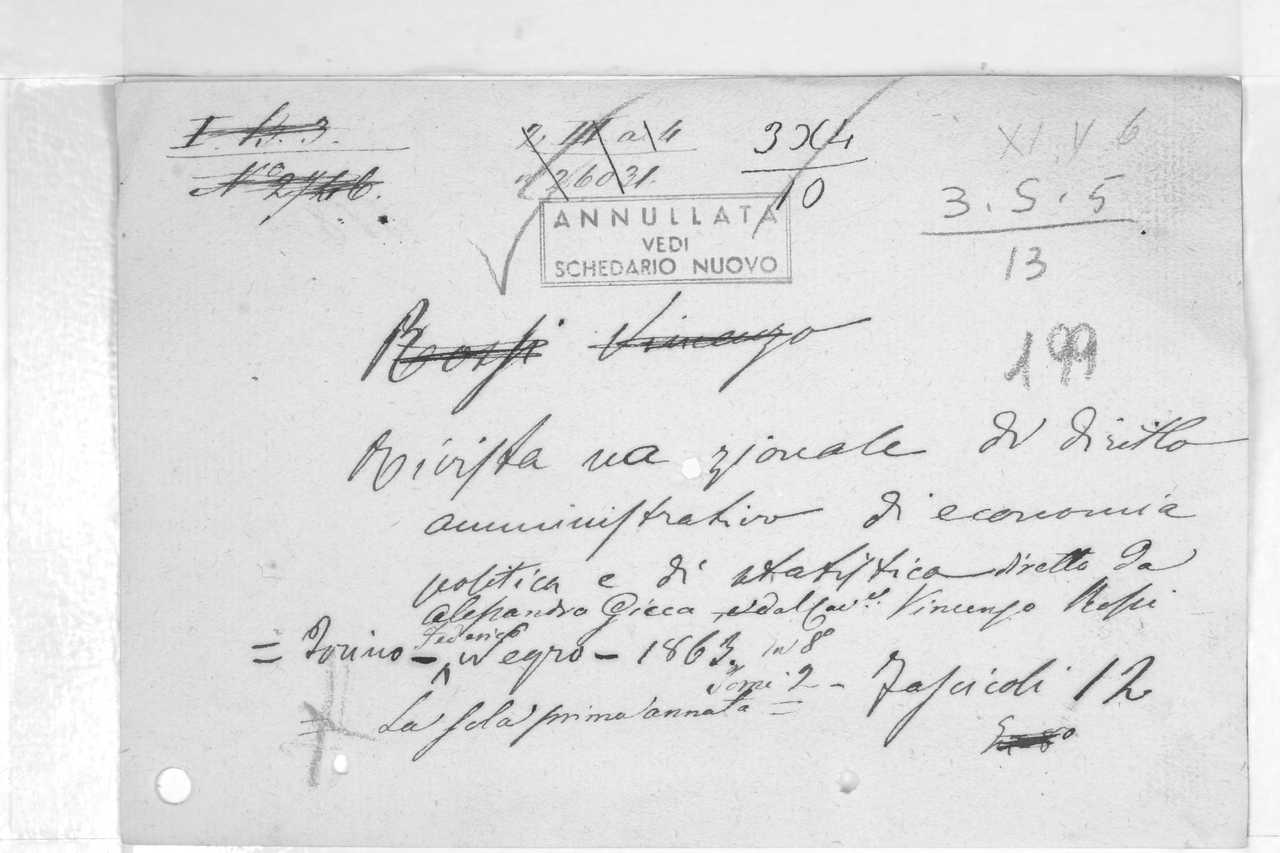 I. H. 3.
2. III a 4
3 X 4
XI. V 6
Nº 2746.
n 26031.
10
3. 5. 5
13
ANNULLATA
VEDI
SCHEDARIO NUOVO
Rossi Vincenzo
199
Rivista nazionale di diritto
amministrativo di economia
politica e di statistica diretta da
Alessandro Gicca e dal Cav. Vincenzo Rossi
= Torino - Federico Negro - 1863. in 8º
tomi 2 - Fascicoli 12
= La sola prima annata =